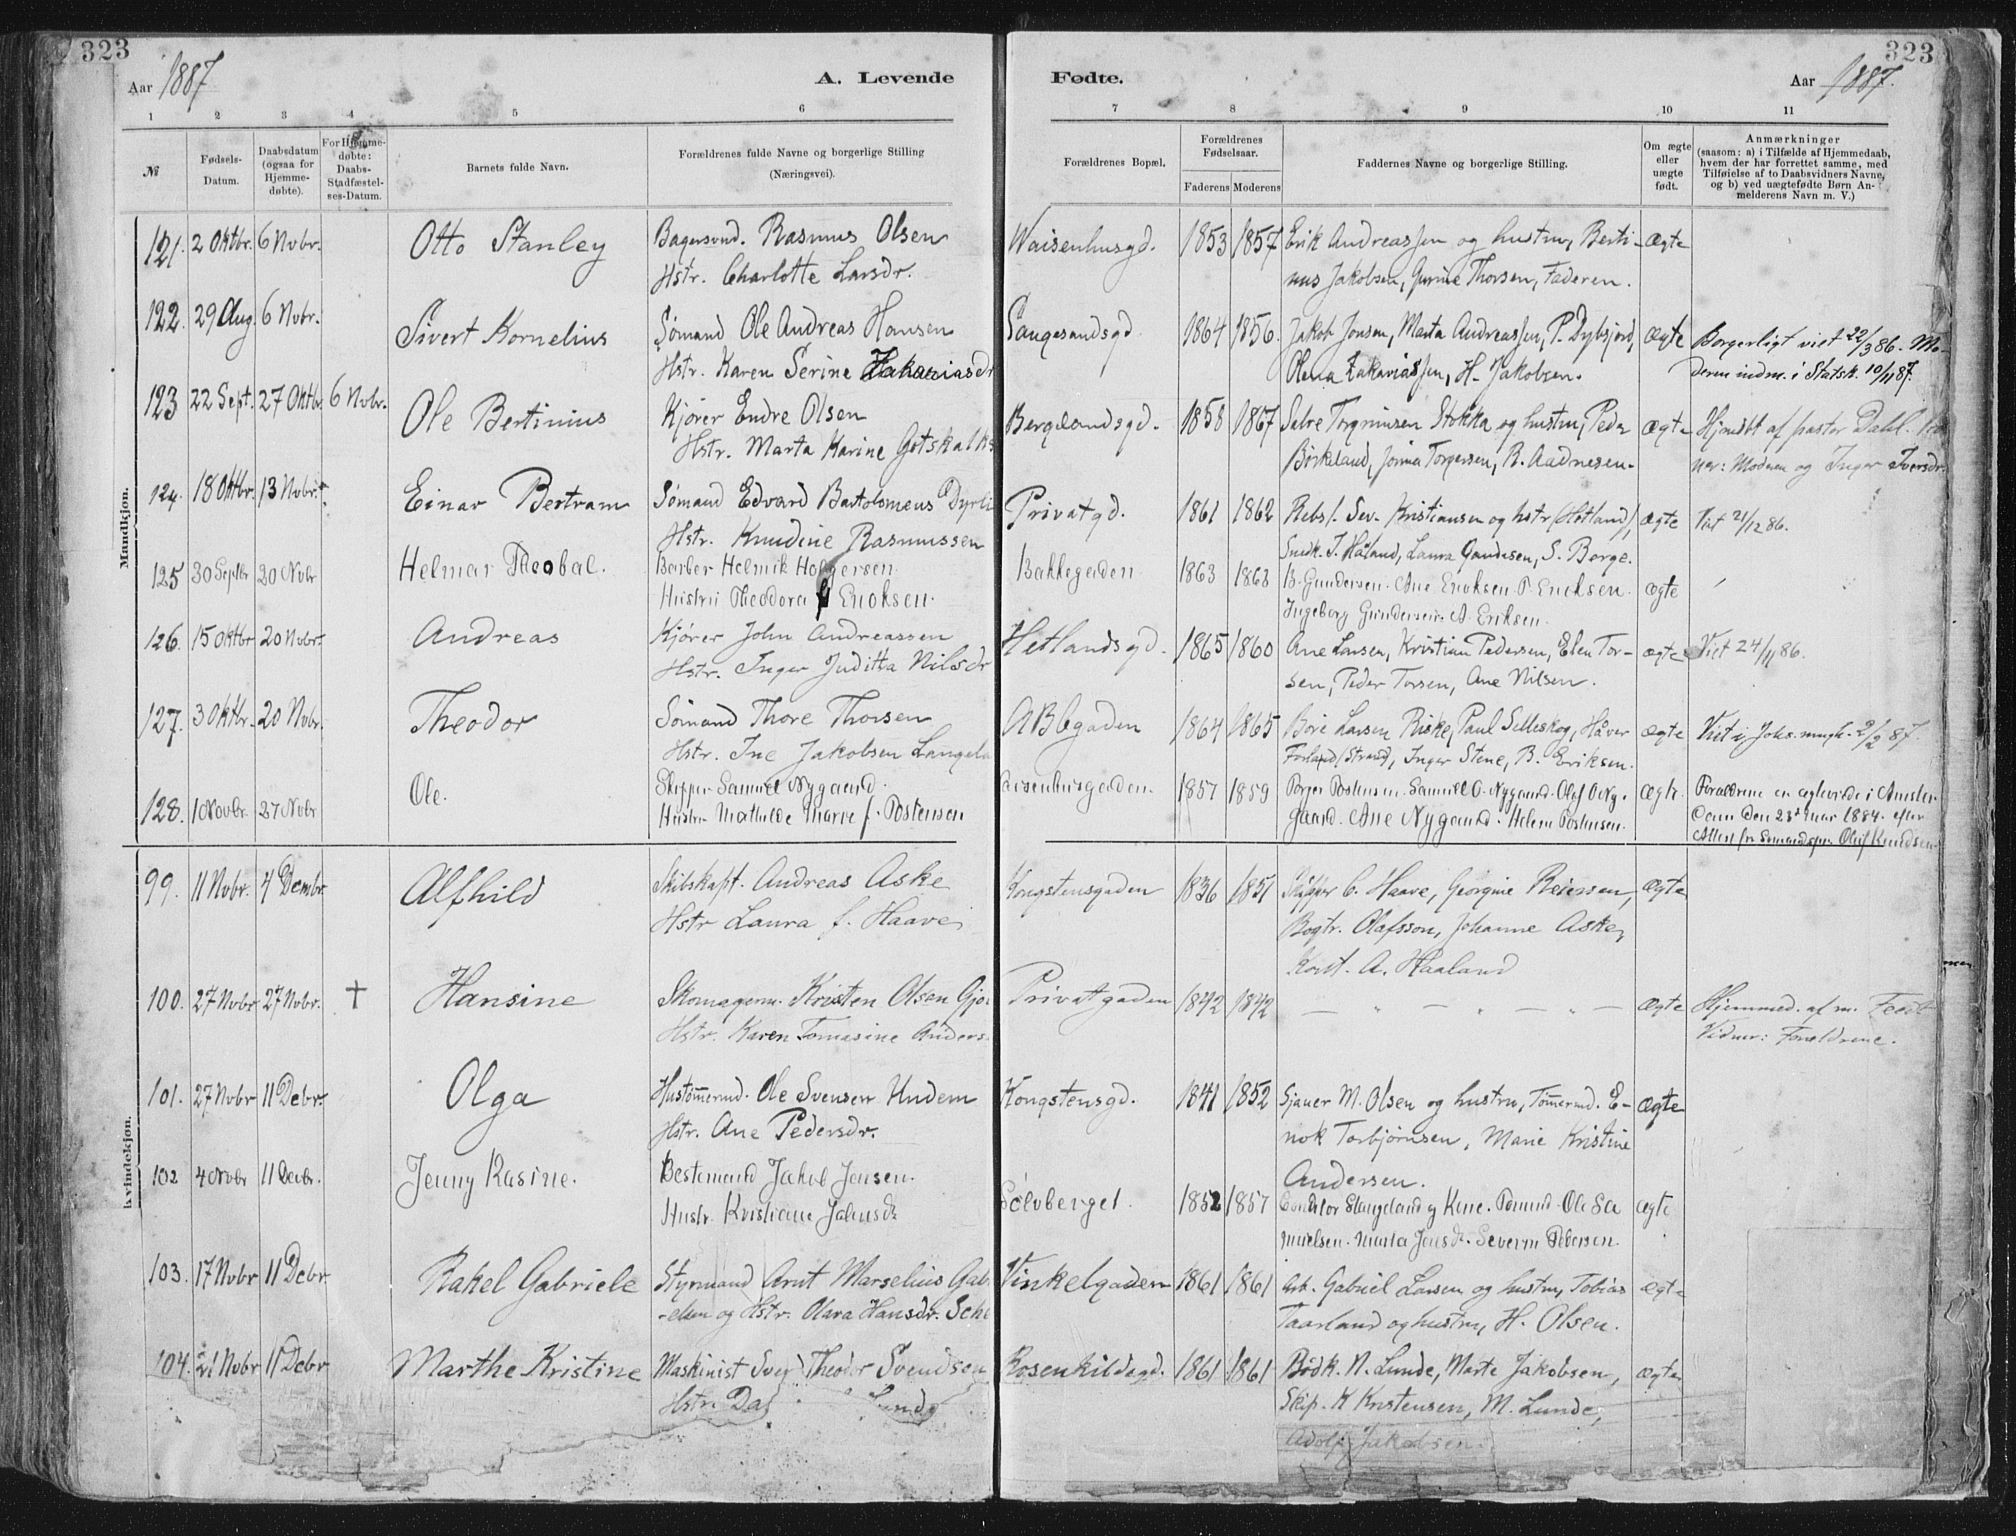 323
Aar 1887
A. Levende
1 2 3 4 5 6
№
Fødsels-
Datum.
Daabsdatum
(ogsaa for
Hjemme-
døbte).
For Hjemme-
døbte:
Daabs-
Stadfæstel-
ses-Datum.
Barnets fulde Navn.
Forældrenes fulde Navne og borgerlige Stilling
(Næringsvei).
Mandkjøn.
121. 2 Oktbr. 6 Nvbr. Otto Stanley Bagersvnd. Rasmus Olsen
Hstr. Charlotte Larsdr.
122. 29 Aug. 6 Nvbr. Sivert Kornelius Sømand Ole Andreas Hansen
Hstr. Karen Serine Zakariasdr
123 22 Sept. 27 Oktbr. 6 Nvbr. Ole Bertinius Kjører Endre Olsen
Hstr. Marta Karine Gotskalks
124. 18 Oktbr. 13 Nvbr. Einar Bertram Sømand Edvard Bartolomeus Dyrli
Hstr. Knudine Rasmussen
125 30 Septbr 20 Nvbr Helmar Theobal. Barber Helmik Holgersen.
Hustru Theodora f Enoksen.
126. 15 Oktbr 20 Nvbr. Andreas Kjører John Andreassen
Hstr. Inger Juditta Nilsdr
127. 3 Oktbr. 20 Nvbr. Theodor Sømand Thore Thorsen
Hstr. Ine Jakobsen Langela
128. 1 Novbr. 27 Nvbr Ole. Skipper Samuel Nygaard.
Hustru Mathilde Marie f. Postensen
Kvindekjøn.
99. 11 Nvbr. 4 Dembr Alfhild Skibskapt. Andreas Aske
Hstr Laura f. Haave
100. 27 Nvbr 27 Nvbr. † Hansine Skomagerm. Kristen Olsen Gjo
Hstr. Karen Tomasine Anders
101. 27 Nvbr 11 Debr. Olga Hustømermd. Ole Svensen Undem
Hstr. Ane Pedersdr.
102 4 Nvbr 11 Decbr. Jenny Rasine. Bestemand Jakob Jensen.
Hustr. Kristiane Jakobsdr
103. 17 Nvbr 11 Debr Rakel Gabriele Styrmand Arnt Marselius Gab
-elsen og Hstr. Olava Hansdr.
104. 21 Nvbr 11 Debr Marthe Kristine Maskinist Theodor Svendsen
Hstr. Lunde
323
Fødte.
Aar 1887.
7 8 9 10 11
Forældrenes Bopæl.
Forældrenes
Fødselsaar.
Faderens Moderens
Faddernes Navne og borgerlige Stilling.
Om ægte
eller
uægte
født.
Anmærkninger
(saasom: a) i Tilfælde af Hjemmedaab,
hvem der har forrettet samme, med
Tilføielse af to Daabsvidners Navne,
og b) ved uægtefødte Børn An-
melderens Navn m. V.)
Waisenhusgd. 1853 1857 Erik Andreassen og hustru, Berti- Ægte
nus Jakobsen, Gurine Thorsen, Faderen.
1864 1856. Jakob Jonsen, Marta Andreassen, P. Dybsjord, Ægte Borgerligt viet 22/3 86. Mo-
Olena Zakariassen, H. Jakobsen. deren indm. i Statsk. 10/11 87.
Bergelandsgd. 1858 1867 Selve Torgrimsen Stokka og hustru, Peder ægte Hjmdbt af pastor Dahl.
Birkeland, Torgersen, R. Aadnesen. ner: Moderen og Inger Iversdr.
Privatgd. 1861 1862 Rebsl. Sev. Kristiansen og hstr (Hetland), ægte Viet 2/12 86.
Snedk. T. Haaland, Laura Gaudesen, S. Borge.
Bakkegaden 1863 1863 B. Gundersen. Ane Enoksen. P. Enoksen. ægte
Ingeborg Gundersen. A. Eriksen.
Hetlandsgd. 1865 1860 Ane Larsen, Kristian Pedersen, Elen Tor- ægte Viet 24/11 86.
sen, Peder Torsen, Ane Nilsen.
ABCgaden 1864 1865 Børe Larsen Riske, Paul Selleskog, Håver ægte Viet i Johs. mngh. 2/2 87.
Forland (Strand), Inger Stene, B. Eriksen.
aisenhusgaden 1857 1859 Porger Postensen. Samuel O. Nygaard. Olaf O Ny- ægte. Forældrene er ægteviede i Amster
gaard. Ane Nygaard. Helene Postensen. dam den 23d Mar 1884. efter
Attest fra Sømandspr. Oluf Knudsen
Kongstensgaden 1836 1851 Skipper C. Haave, Georgine Reiersen, Ægte
Bogtr. Olafsson, Johanne Aske,
Kont. A. Haaland
Privatgaden 1842 1842 ægte Hjemmed. af m. Feodt
Vidner: Forældrene.
Kongstensgd. 1841 1852 Sjauer M. Olsen og hustru, Tømermd. E- Ægte
nok Torbjørnsen, Marie Kristine
Andersen.
Sølvberget 1852 1857 Conditor Stangeland og Kone. Ole Sa ægte
muelsen. Marta Jensdr. Severin Pedersen.
Vinkelgaden 1861 1861 Arb. Gabriel Larsen og hustru, Tobias ægte
Taarland og hustru, H. Olsen.
Rosenkildegd. 1861 1861 Bødk. N. Lunde, Marte Jakobsen, ægte
Skip. K Kristensen, M. Lunde,
Adolf Jakobsen.